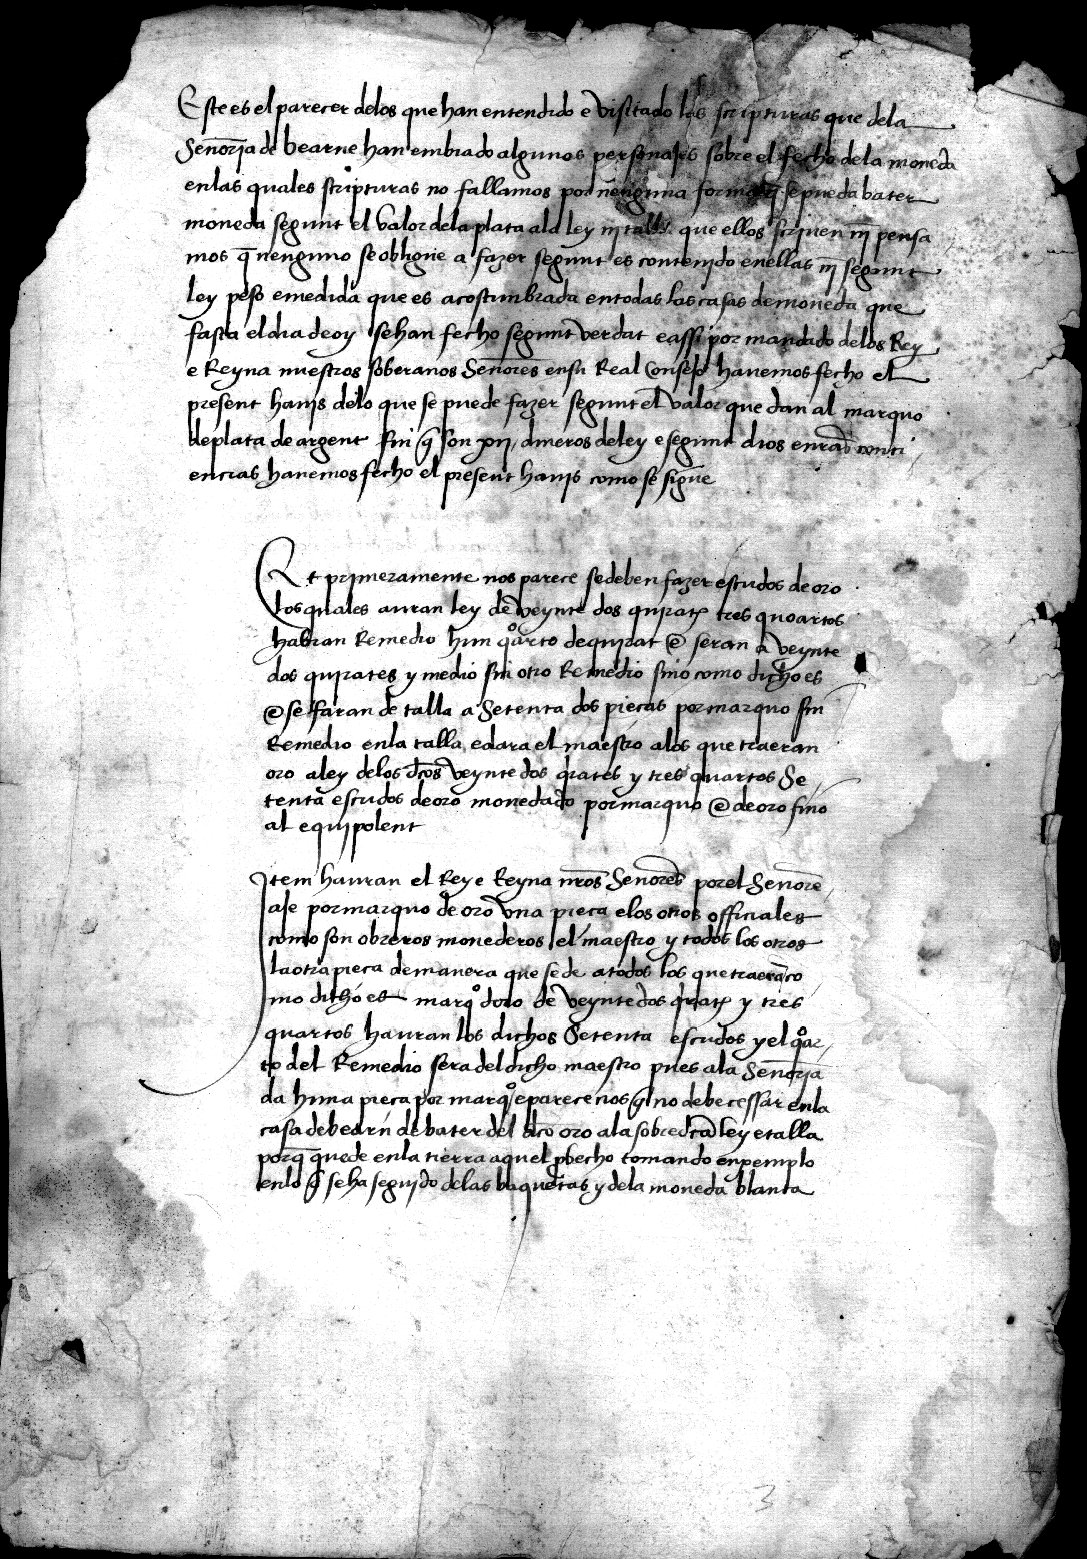 Este es el parecer delos que han entendido e visitado las scripturas que dela
Señoria de bearne han embiado algunos personajes sobre el fecho dela moneda
enlas quales scripturas no fallamos por nenguna forma q̃ se pueda bater
moneda segunt el valor dela plata ala ley nj talla que ellos scriuen nj̃ pensa
mos q̃ nenguno se obligue a fazer segunt es contenjdo enellas nj̃ segunt
ley peso e medida que es acostunbrada entodas las casas de moneda que
fasta el dia de oy se han fecho segunt verdat e assi por mandado delos Rey
e Reyna nuestros soberanos Señores ensu Real Consejo hauemos fecho el
present hanjs delo que se puede fazer segunt el valor que dan al marquo
de plata de argent fin q̃ son xij dineros de ley e segunt dios enras conci
encias hauemos fecho el present hanjs como se sigue
Et primeramente nos parece se deben fazer escudos de oro
los quales auran ley de veynte dos quirates tres quoartos
habran Remedio hun qºarto de quirat e seran a veynte
dos quirates y medio sin otro Remedio sino como dicho es
e se faran de talla a Setenta dos pieças por marquo sin
Remedio enla talla e dara el maestro alos que traeran
oro a ley delos dc̃os veynte dos q̃rates y tres quartos Se
tenta escudos de oro monedado por marquo e de oro fino
al equipolent
Jtem hauran el Rey e Reyna nr̃os Señores por el Señore
aje por marquo de oro vna pieça e los otros officiales
como son obreros monederos el maestro y todos los otros
la otra pieça de manera que se de a todos los que traeran co
mo dicho es marqº doro de veynte dos q̃rates y tres
quartos hauran los dichos Setenta escudos y el qºar
to del Remedio sera del dicho maestro pues ala Señoria
da huna pieça por marqº e parece nos q̃ no debe cessar enla
casa de bearn de bater del dc̃o oro ala sobredc̃a ley e talla
porq̃ quede enla tierra aquel probecho tomando exemplo
enlo q̃ se ha seguido delas baquetas y dela moneda blanca
3